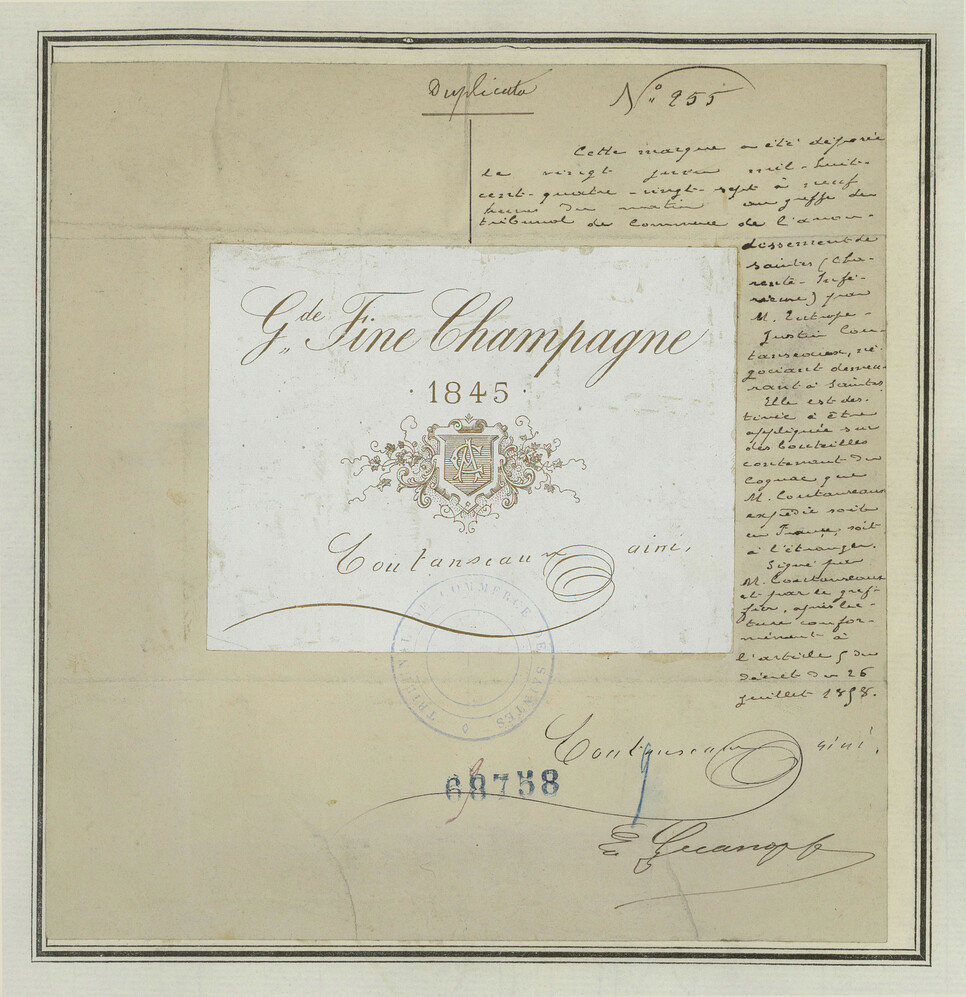 Duplicata
N° 255
Cette marque a été déposée
le vingt juin mil-huit-
cent-quatre-vingt-sept à neuf
heures du matin au greffe du
tribunal de Commerce de l'arron-
dissement de
Saintes (Cha-
rente-Infé-
rieure) par
M. Eutrope-
Justin Cou-
tanseaux, né-
gociant demeu-
rant à Saintes
Elle est des-
tinée à être
appliquée sur
des bouteilles
contenant du
Cognac que
M. Coutanseaux
expédie soit
en France, soit
à l'étranger.
Signé par
M. Coutanseaux
et par le gref-
fier, après lec-
ture confor-
mément à
l'article 5 du
décret du 26
juillet 1858.
Gde Fine Champagne
· 1845 ·
AC
Coutanseaux aîné.
TRIBUNAL DE COMMERCE DE SAINTES
Coutanseaux aîné.
68758
E.